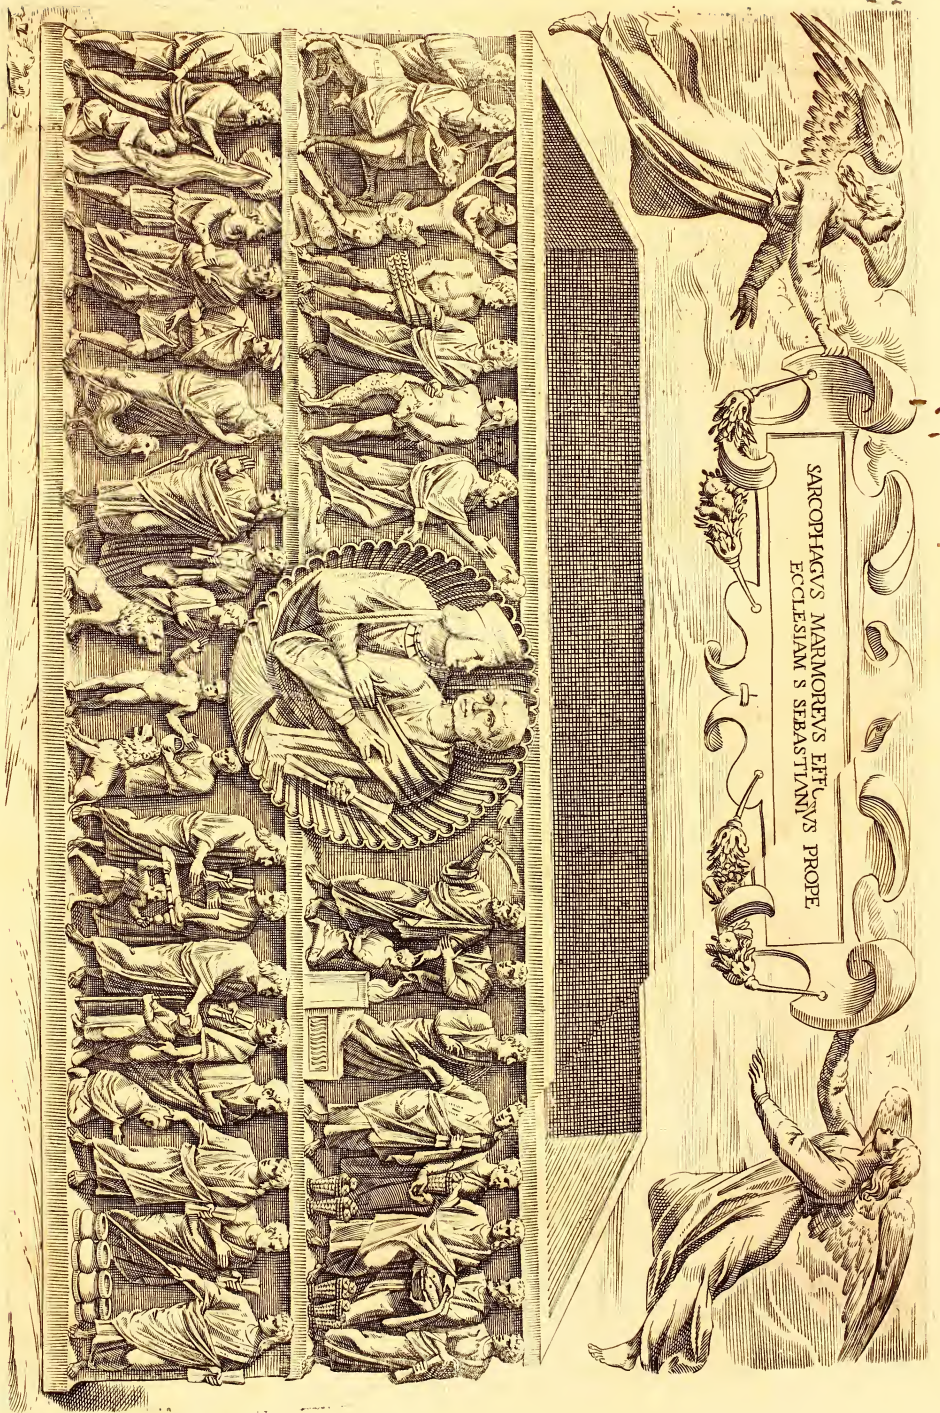 SARCOPHAGVS MARMOREVS PROPE
ECCLESIAM S SEBASTIANI